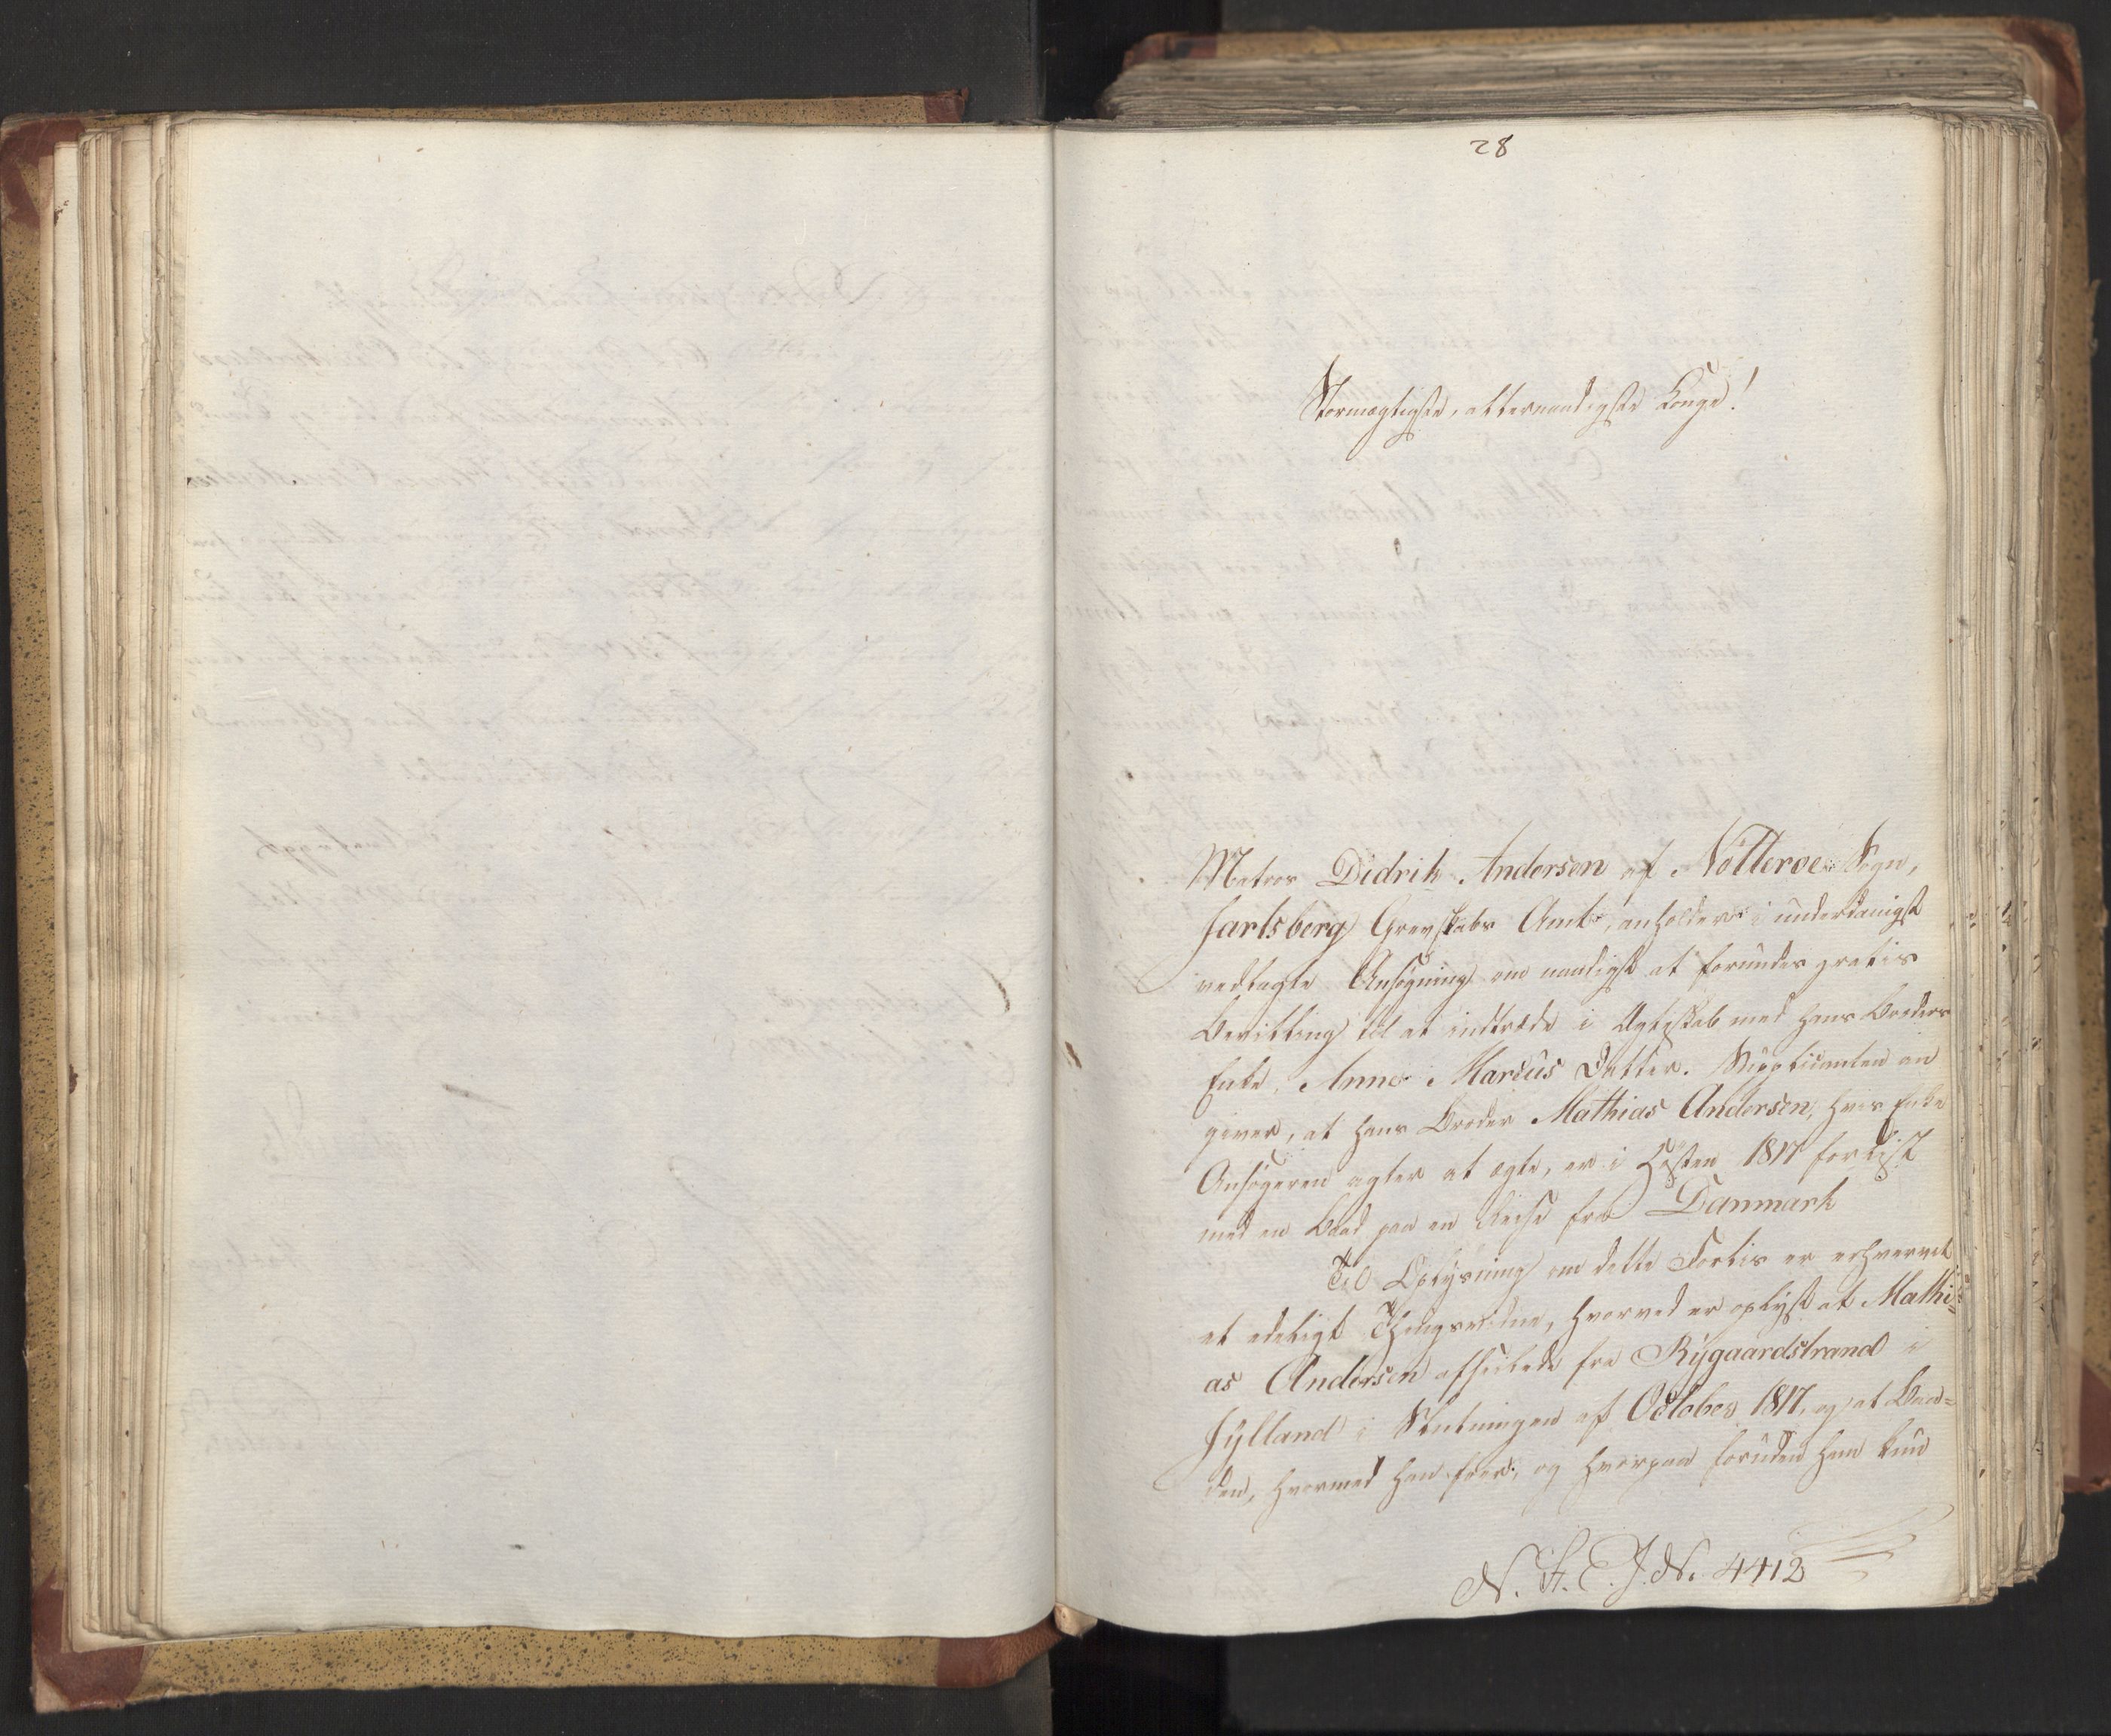 28
Stormægtigste, allernaadigste Konge!
Matros Didrik Andersen af Nötteröe Sogn,
Jarlsberg Grevskabs Amt, anholder i underdanigst
vedlagte Ansøgning om naadigst at forundes gratis
Bevilling til at indtræde i Ægteskab med hans Broders
Enke, Anne Marcus Datter. Supplicanten an
giver, at hans Broder Mathias Andersen, hvis Enke
Ansøgeren agter at ægte, er i Høsten 1817 forlist
med en Baad paa en Reise fra Danmark
Til Oplysning om dette Forlis er erhvervet
et edeligt Thingsvidne, hvorved er oplyst at Mathi-
as Andersen afseilede fra Rygaardstrand i
Jylland i Slutningen af October 1817, og at Baa-
den, hvormed han foer, og hvorpaa foruden ham kun
N. 4412